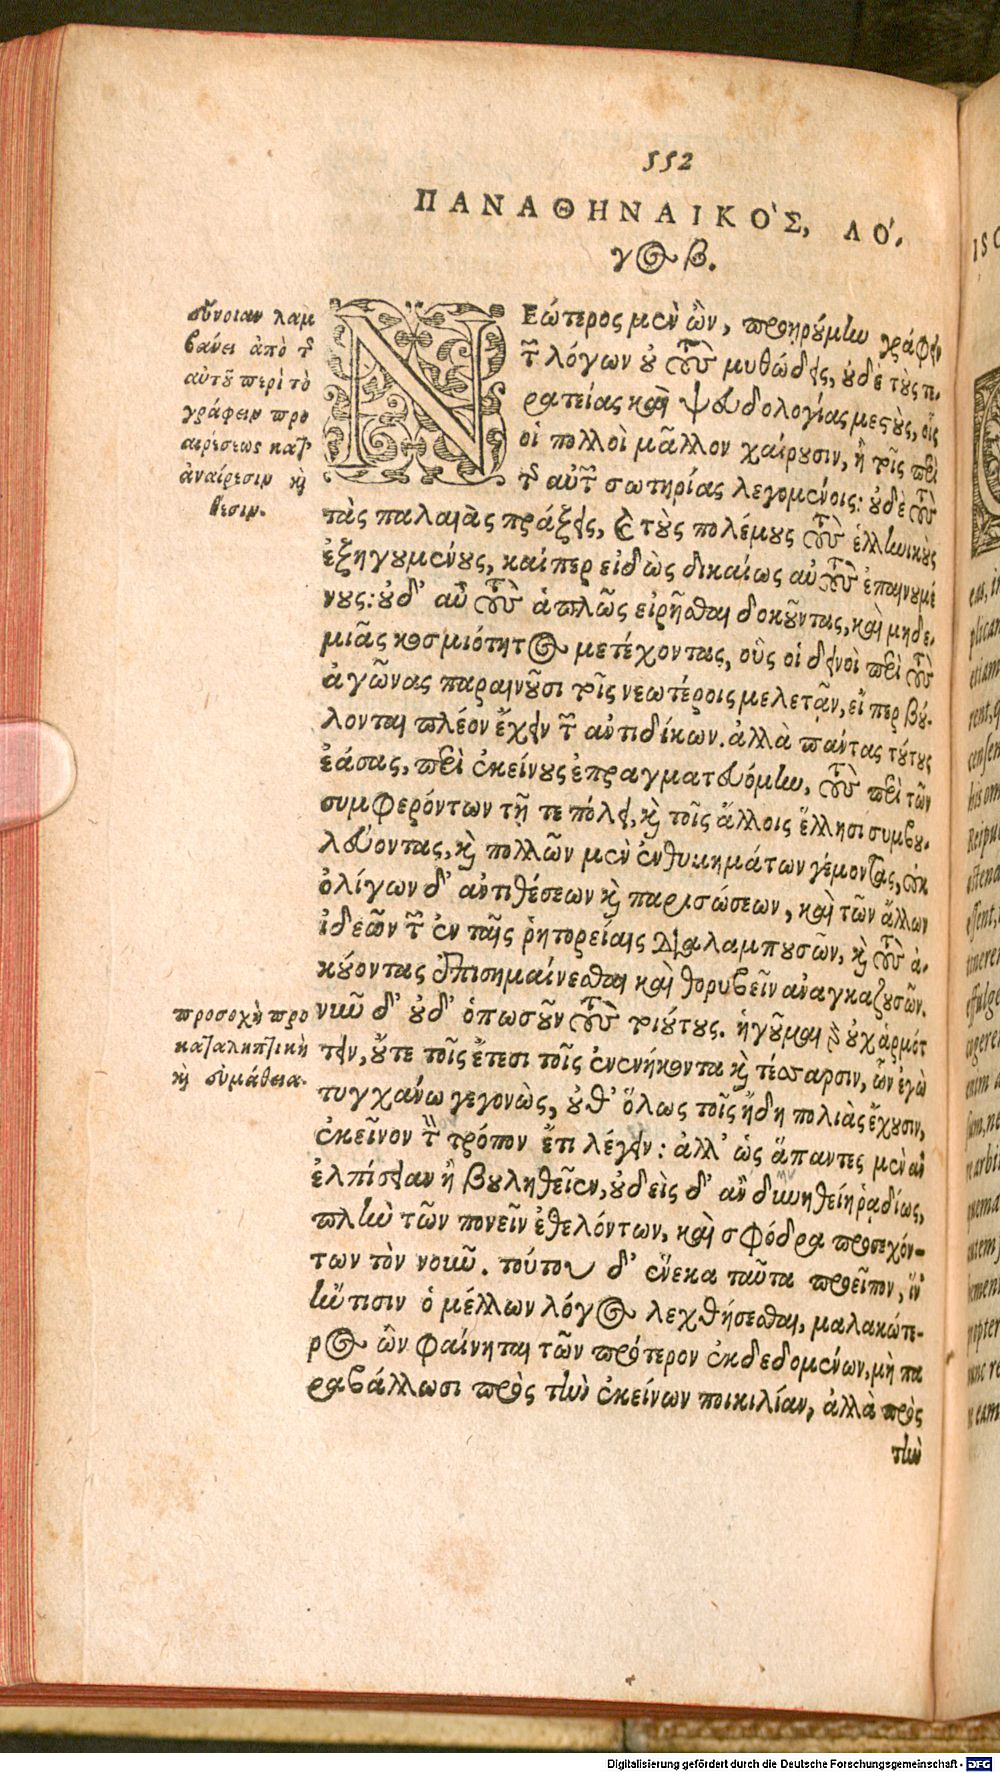 552
ΠΑΝΑΘΗΝΑΙΚΟ'Σ, ΛΟ'.
γος β.
εὔνοιαν λαμ
βάνει ἀπὸ τῆς
αὐτοῦ περὶ τὸ
γράφειν προ
αιρέσεως κατ'
ἀναίρεσιν καὶ
θέσιν.
ΝΕώτερος μὲν ὢν, προῃρούμην γράφειν
τῶν λόγων οὐ τοὺς μυθώδεις, οὐδὲ τοὺς τε-
ρατείας καὶ ψευδολογίας μεστοὺς, οἷς
οἱ πολλοὶ μᾶλλον χαίρουσιν, ἢ τοῖς περὶ
τῆς αὐτῶν σωτηρίας λεγομένοις: οὐδὲ τοὺς
τὰς παλαιὰς πράξεις, καὶ τοὺς πολέμους τοὺς ἑλληνικοὺς
ἐξηγουμένους, καίπερ εἰδὼς δικαίως αὐτοὺς ἐπαινουμέ
νους: οὐδ' αὖ τοὺς ἁπλῶς εἰρῆσθαι δοκοῦντας, καὶ μηδε-
μιᾶς κοσμιότητος μετέχοντας, οὓς οἱ δεινοὶ περὶ τοὺς
ἀγῶνας παραινοῦσι τοῖς νεωτέροις μελετᾷν, εἴπερ βού-
λονται πλέον ἔχειν τῶν ἀντιδίκων. ἀλλὰ πάντας τούτους
ἐάσας, περὶ ἐκείνους ἐπραγματευόμην, τοὺς περὶ τῶν
συμφερόντων τῇ τε πόλει, καὶ τοῖς ἄλλοις ἕλλησι συμβου-
λεύοντας, καὶ πολλῶν μὲν ἐνθυμημάτων γέμοντας, οὐκ
ὀλίγων δ' ἀντιθέσεων καὶ παρισώσεων, καὶ τῶν ἄλλων
ἰδεῶν τῶν ἐν ταῖς ῥητορείαις διαλαμπουσῶν, καὶ τοὺς ἀ-
κούοντας ἐπισημαίνεσθαι καὶ θορυβεῖν ἀναγκαζουσῶν.
προσοχὴ προ
καταληπτικὴ
καὶ εὐμάθεια.
νῦν δ' οὐδ' ὁπωσοῦν τοὺς τοιούτους. ἡγοῦμαι γὰρ οὐχ ἁρμότ
τειν, οὔτε τοῖς ἔτεσι τοῖς ἐνενήκοντα καὶ τέσσαρσιν, ὧν ἐγὼ
τυγχάνω γεγονὼς, οὔθ' ὅλως τοῖς ἤδη πολιὰς ἔχουσιν,
ἐκεῖνον τὸν τρόπον ἔτι λέγειν: ἀλλ' ὡς ἅπαντες μὲν ἂν
ἐλπίσειαν ἢ βουληθεῖεν, οὐδεὶς δ' ἂν δυνηθείη ῥᾳδίως,
πλὴν τῶν πονεῖν ἐθελόντων, καὶ σφόδρα προσεχόν-
των τὸν νοῦν. τούτου δ' ἕνεκα ταῦτα προεῖπον, ἵν'
ἤν τισιν ὁ μέλλων λόγος λεχθήσεσθαι, μαλακώτε-
ρος ὢν φαίνηται τῶν πρότερον ἐκδεδομένων, μὴ πα
ραβάλλωσι πρὸς τὴν ἐκείνων ποικιλίαν, ἀλλὰ πρὸς
τὴν
Digitalisierung gefördert durch die Deutsche Forschungsgemeinschaft - DFG